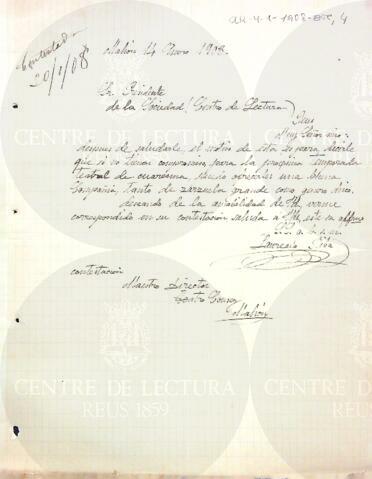 AR-4-1-1908-ESC, 4
Contestada
20/1/08
Mahón 14 Enero 1908.
Sr. Presidente
de la Sociedad (Centro de Lectura)
Reus
Muy Señor mio:
despues de saludarle el motivo de ésta es para decirle
que si no tienen compromiso para la proxima temporada
teatral de cuaresma, puedo ofrecerles una buena
Compañia, tanto de zarzuela grande como genero chico.
Deseando de la amabilidad de Vd. verme
correspondido en su contestación saluda a Vd. este su affmo
S.S. q. b. s. m.
contestación
Maestro Director
Teatro
Mahón
CENTRE DE LECTURA
REUS 1859
CENTRE DE LECTURA
REUS 1859